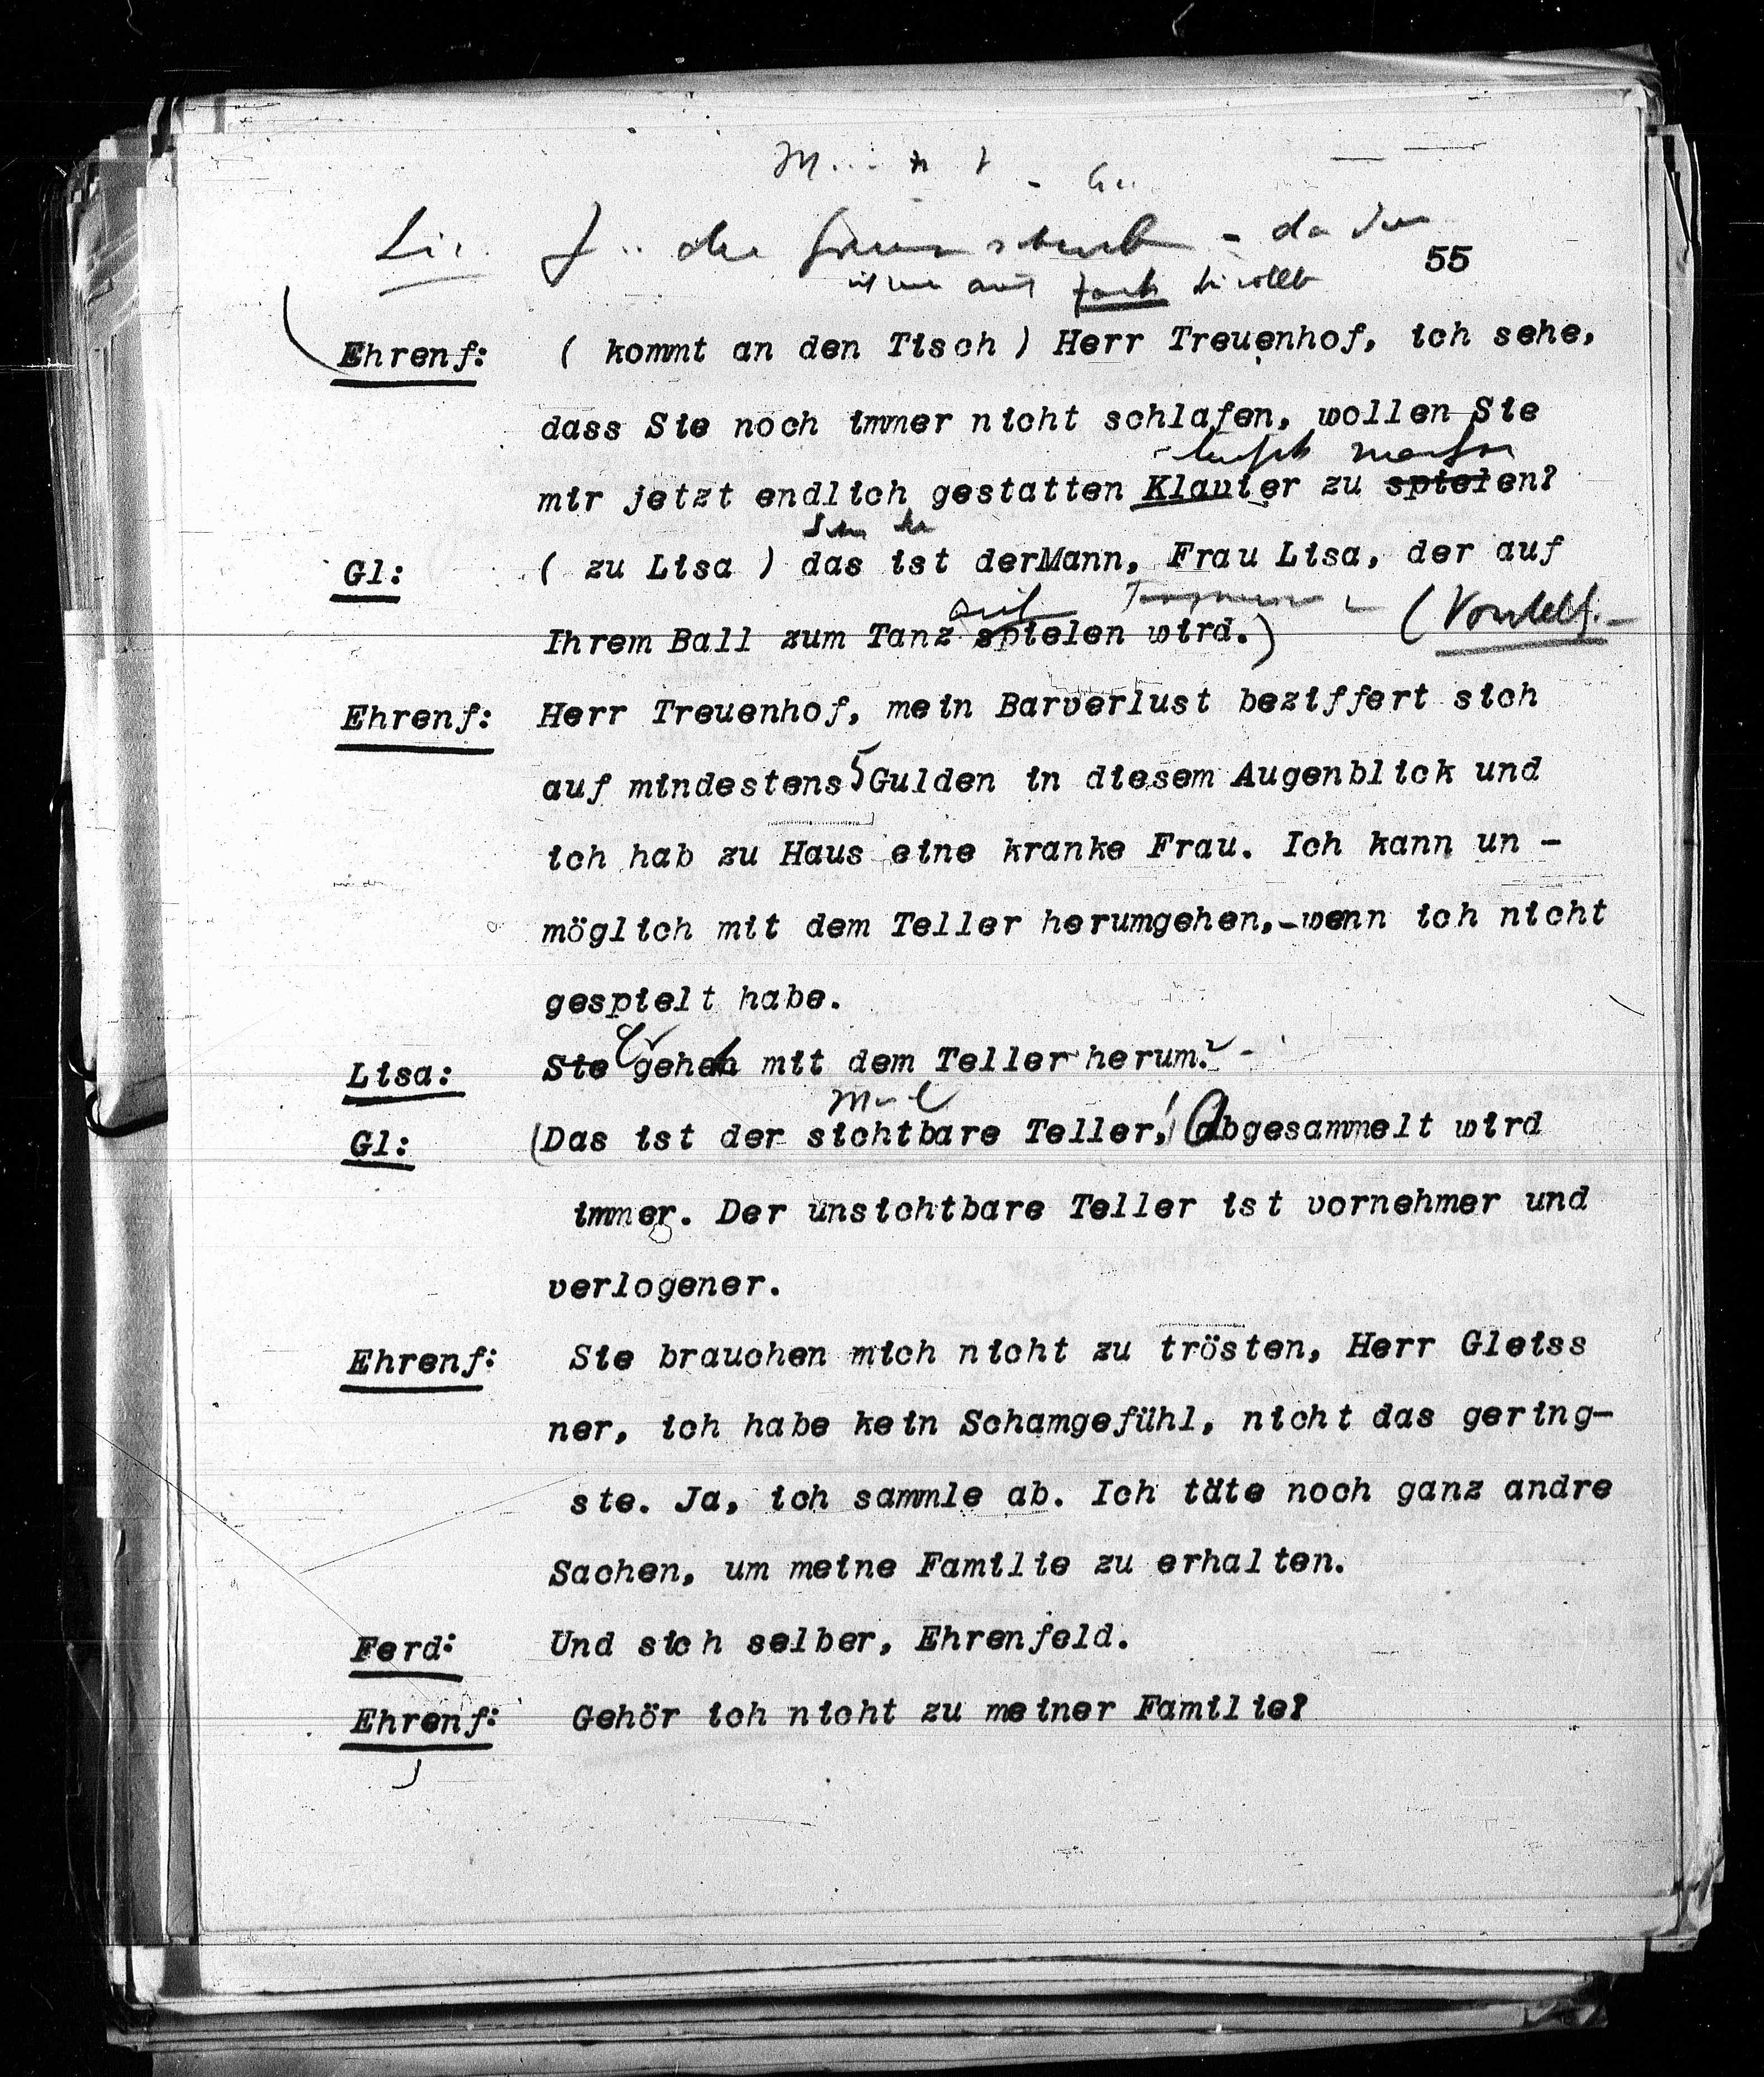 55
Ehrenf: ( kommt an den Tisch ) Herr Treuenhof, ich sehe,
dass Sie noch immer nicht schlafen, wollen Sie
mir jetzt endlich gestatten Klavier zu spielen?
Gl: ( zu Lisa ) das ist derMann, Frau Lisa, der auf
Ihrem Ball zum Tanz spielen wird.)
Ehrenf: Herr Treuenhof, mein Barverlust beziffert sich
auf mindestens 5 Gulden in diesem Augenblick und
ich hab zu Haus eine kranke Frau. Ich kann un -
möglich mit dem Teller herumgehen,-wenn ich nicht
gespielt habe.
Lisa: Sie Er geht mit dem Teller herum? -
Gl: (Das ist der sichtbare Teller! Abgesammelt wird
immer. Der unsichtbare Teller ist vornehmer und
verlogener.
Ehrenf: Sie brauchen mich nicht zu trösten, Herr Gleiss
ner, ich habe kein Schamgefühl, nicht das gering-
ste. Ja, ich sammle ab. Ich täte noch ganz andre
Sachen, um meine Familie zu erhalten.
Ferd: Und sich selber, Ehrenfeld.
Ehrenf: Gehör ich nicht zu meiner Familie?